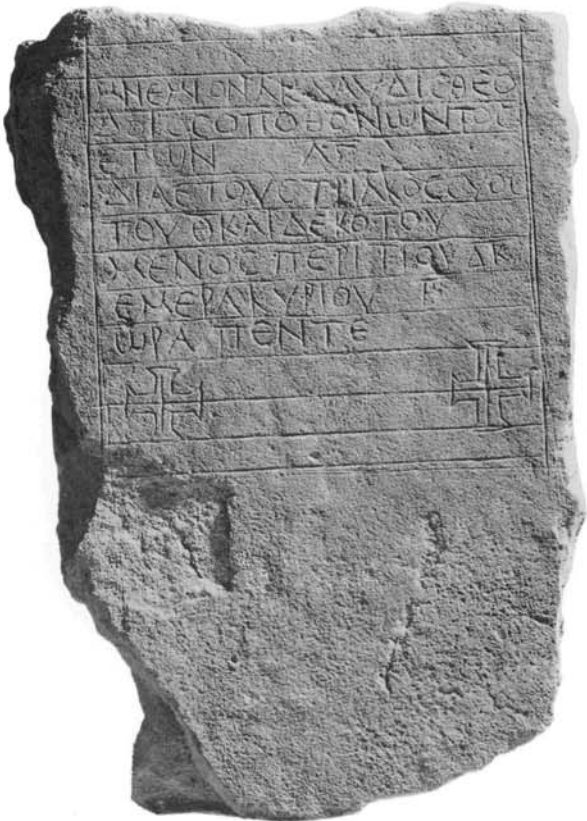 ΜΝΕΜΙΟΝ ΚΛΑΥΔΙϹ ΘΕΟ
ΑΠΟΘΟΝΩΝΤΟϹ
ΕΤΩΝ ΛϚ
ΔΙΑ ΕΤΟΥϹ ΤΡΙΑΚΟϹΩΥΟϹ
ΤΟΥ Θ ΚΑΙ ΔΕΚΟΤΟΥ
ΜΕΝΟϹ ΠΕΡΙΤΙΟΥ ΔΚ
ΕΜΕΡΑ ΚΥΡΙΟΥ
ΩΡΑ ΠΕΝΤΕ